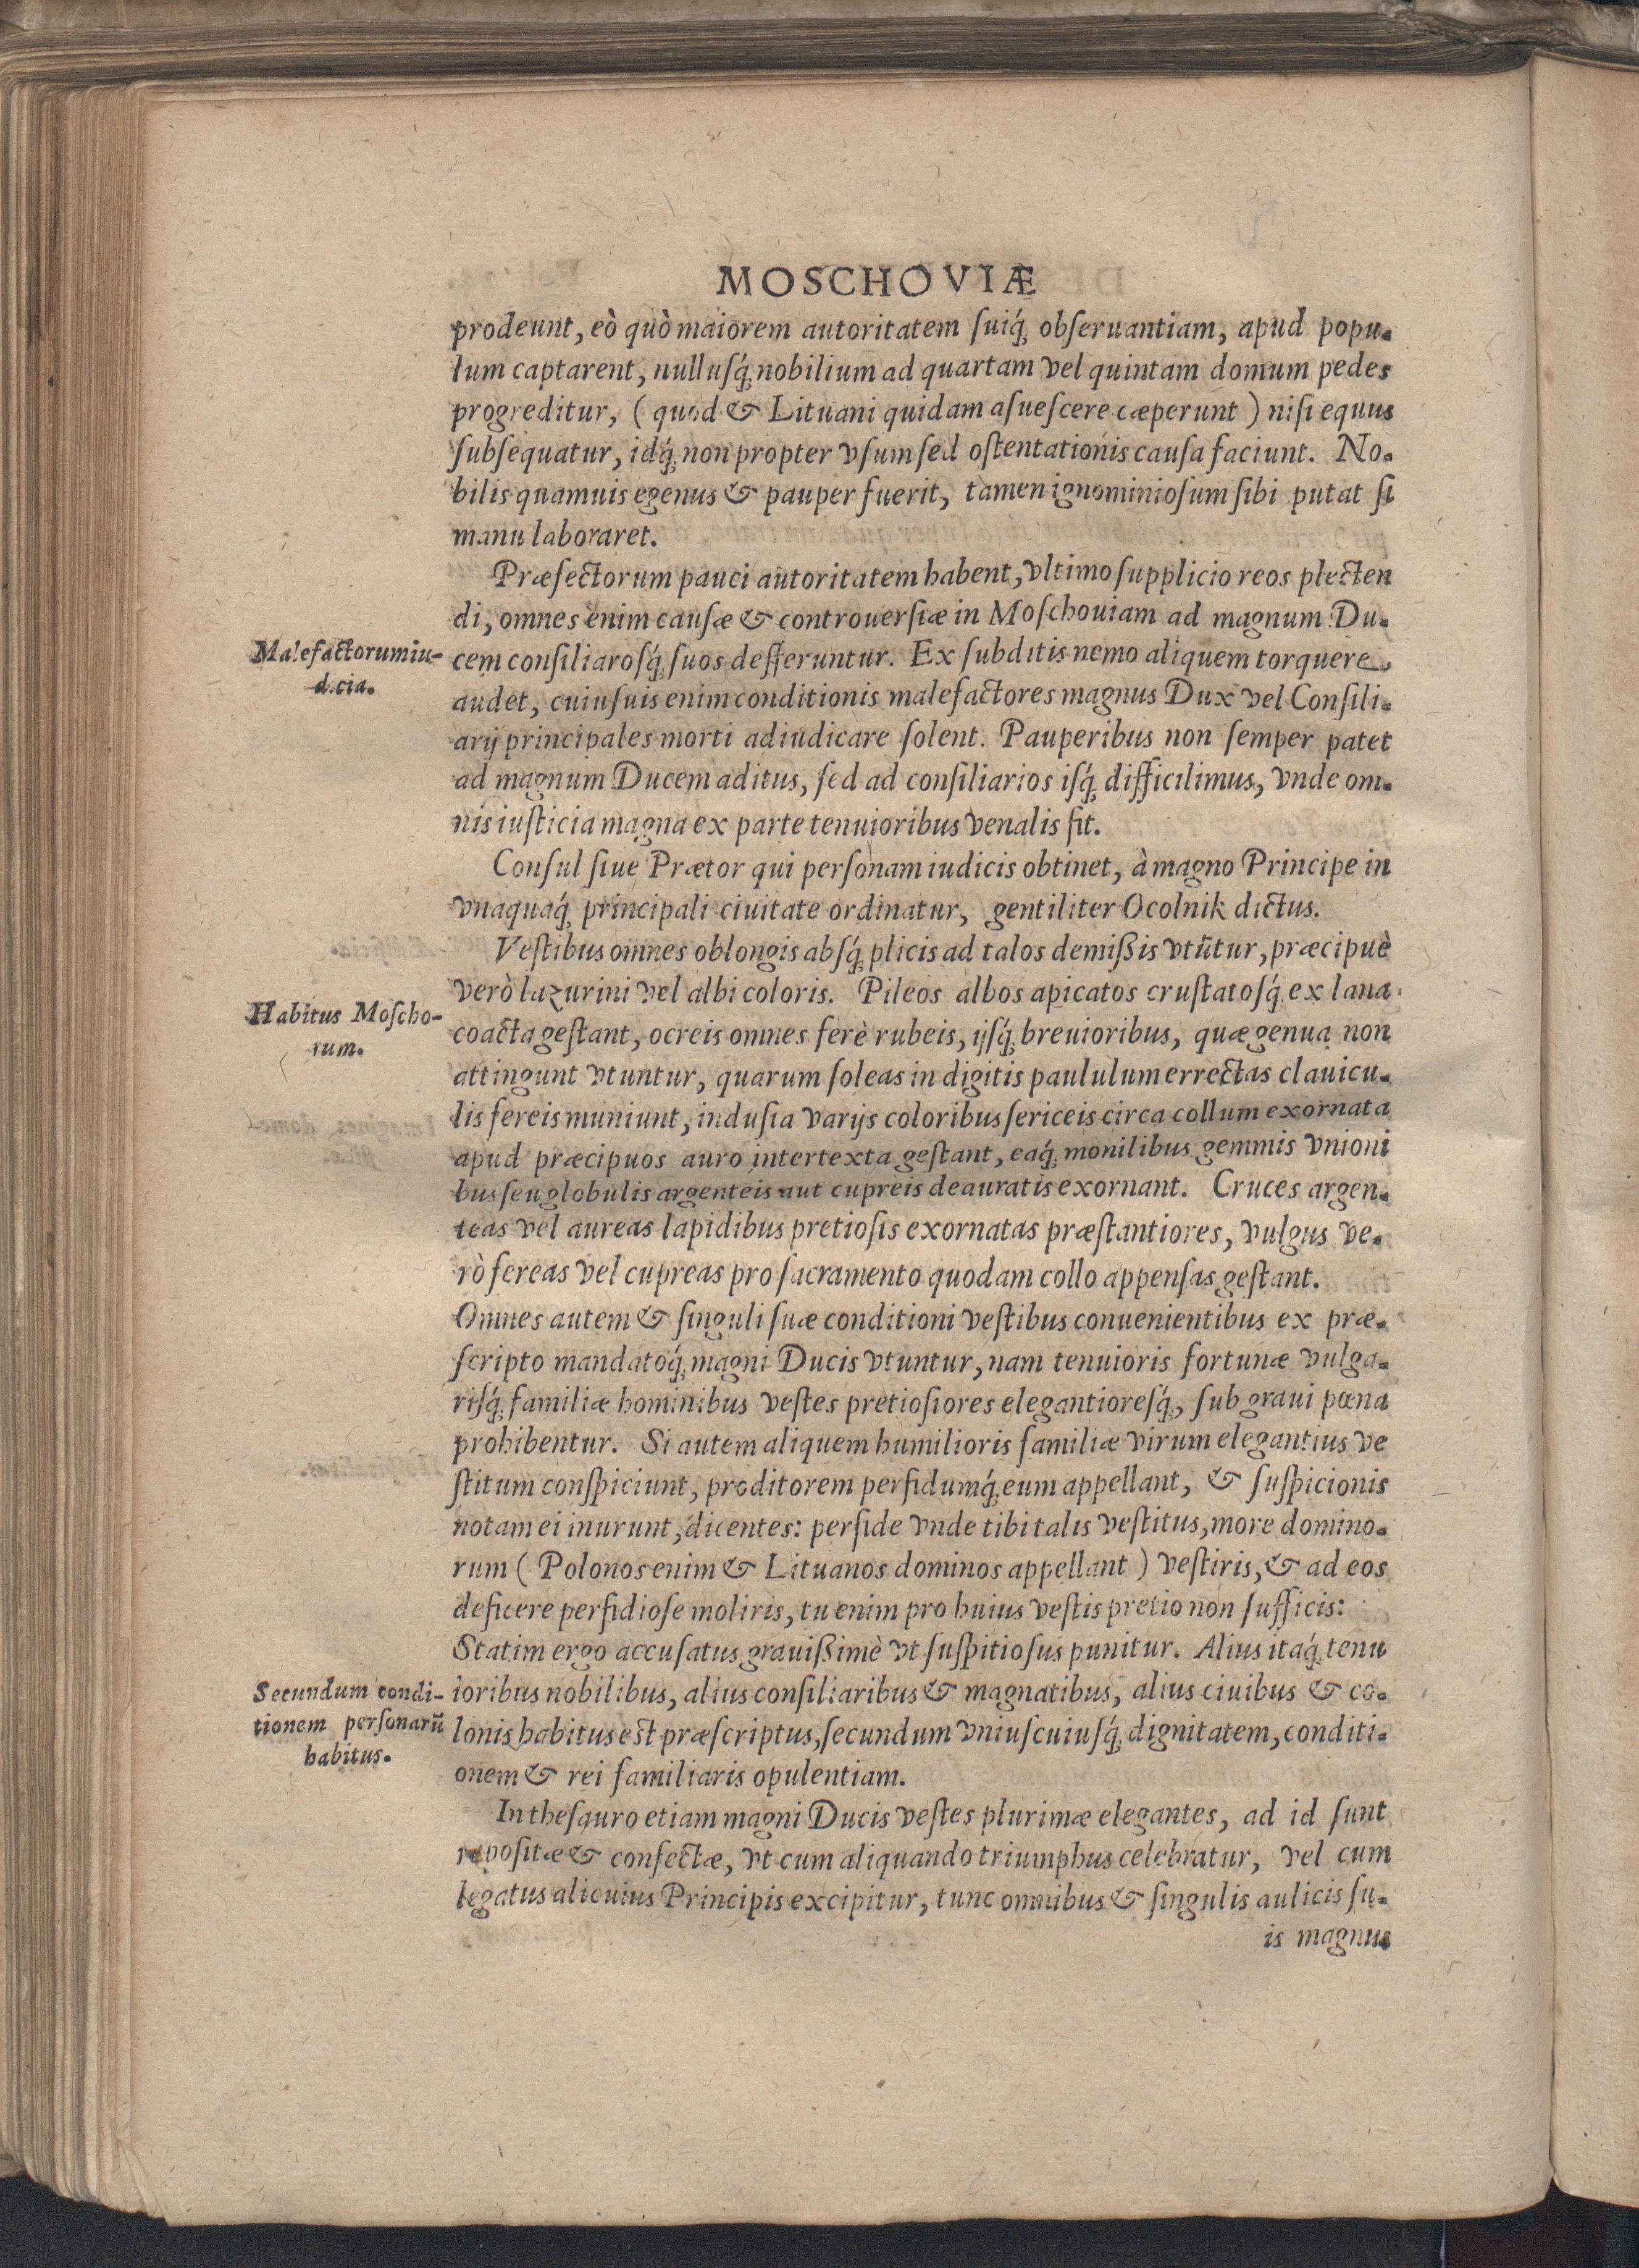 MOSCHOVIÆ
prodeunt, eò quò maiorem autoritatem ſuiq́; obſeruantiam, apud popu-
lum captarent, nulluſq́; nobilium ad quartam vel quintam domum pedes
progreditur, ( quod & Lituani quidam aſueſcere cæperunt ) niſi equus
ſubſequatur, idq́; non propter vſum ſed oſtentationis cauſa faciunt. No-
bilis quamuis egenus & pauper fuerit, tamen ignominioſum ſibi putat ſi
manu laboraret.
Præfectorum pauci autoritatem habent, vltimo ſupplicio reos plecten
di, omnes enim cauſæ & controuerſiæ in Moſchouiam ad magnum Du-
Malefactorum iu-
dicia.
cem conſiliaroſq́; ſuos defferuntur. Ex ſubditis nemo aliquem torquere
audet, cuiuſuis enim conditionis malefactores magnus Dux vel Conſili-
arij principales morti adiudicare ſolent. Pauperibus non ſemper patet
ad magnum Ducem aditus, ſed ad conſiliarios iſq́; difficilimus, vnde om-
nis iuſticia magna ex parte tenuioribus venalis fit.
Conſul ſiue Prætor qui perſonam iudicis obtinet, à magno Principe in
vnaquaq́; principali ciuitate ordinatur, gentiliter Ocolnik dictus.
Veſtibus omnes oblongis abſq́; plicis ad talos demiſſis vtūtur, præcipuè
verò lazurini vel albi coloris. Pileos albos apicatos cruſtatoſq́; ex lana
Habitus Moſcho-
rum.
coacta geſtant, ocreis omnes ferè rubeis, ijſq́; breuioribus, quæ genua non
attingunt vtuntur, quarum ſoleas in digitis paululum errectas clauicu-
lis fereis muniunt, induſia varijs coloribus ſericeis circa collum exornata
apud præcipuos auro intertexta geſtant, eaq́; monilibus gemmis vnioni
bus ſeu globulis argenteis aut cupreis deauratis exornant. Cruces argen-
teas vel aureas lapidibus pretioſis exornatas præſtantiores, vulgus ve-
rò fereas vel cupreas pro ſacramento quodam collo appenſas geſtant.
Omnes autem & ſinguli ſuæ conditioni veſtibus conuenientibus ex præ-
ſcripto mandatoq́; magni Ducis vtuntur, nam tenuioris fortunæ vulga-
riſq́; familiæ hominibus veſtes pretioſiores elegantioreſq́;, ſub graui pœna
prohibentur. Si autem aliquem humilioris familiæ virum elegantius ve
ſtitum conſpiciunt, proditorem perfidumq́; eum appellant, & ſuſpicionis
notam ei inurunt, dicentes: perfide vnde tibi talis veſtitus, more domino-
rum ( Polonos enim & Lituanos dominos appellant ) veſtiris, & ad eos
deficere perfidioſe moliris, tu enim pro huius veſtis pretio non ſufficis:
Statim ergo accuſatus grauiſſimè vt ſuſpitioſus punitur. Alius itaq́; tenu
Secundum condi-
tionem perſonarū
habitus.
ioribus nobilibus, alius conſiliaribus & magnatibus, alius ciuibus & co-
lonis habitus eſt præſcriptus, ſecundum vniuſcuiuſq́; dignitatem, conditi-
onem & rei familiaris opulentiam.
In theſauro etiam magni Ducis veſtes plurimæ elegantes, ad id ſunt
repoſitæ & confectæ, vt cum aliquando triumphus celebratur, vel cum
legatus alicuius Principis excipitur, tunc omnibus & ſingulis aulicis ſu-
is magnus